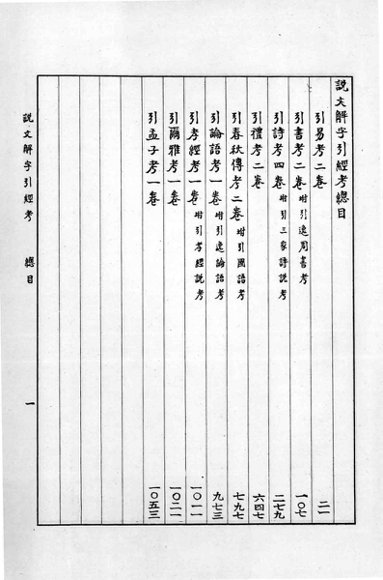 說文解字引經考總目
引易考二卷 二一
引書考二卷 坿引逸周書考 一〇七
引詩考四卷 坿引三家詩說考 二七九
引禮考二卷 六四七
引春秋傳考二卷 坿引國語考 七九七
引論語考一卷 坿引逸論語考 九七三
引孝經考一卷 坿引孝經說考 一〇一一
引爾雅考一卷 一〇二一
引孟子考一卷 一〇五三
說文解字引經考 總目 一